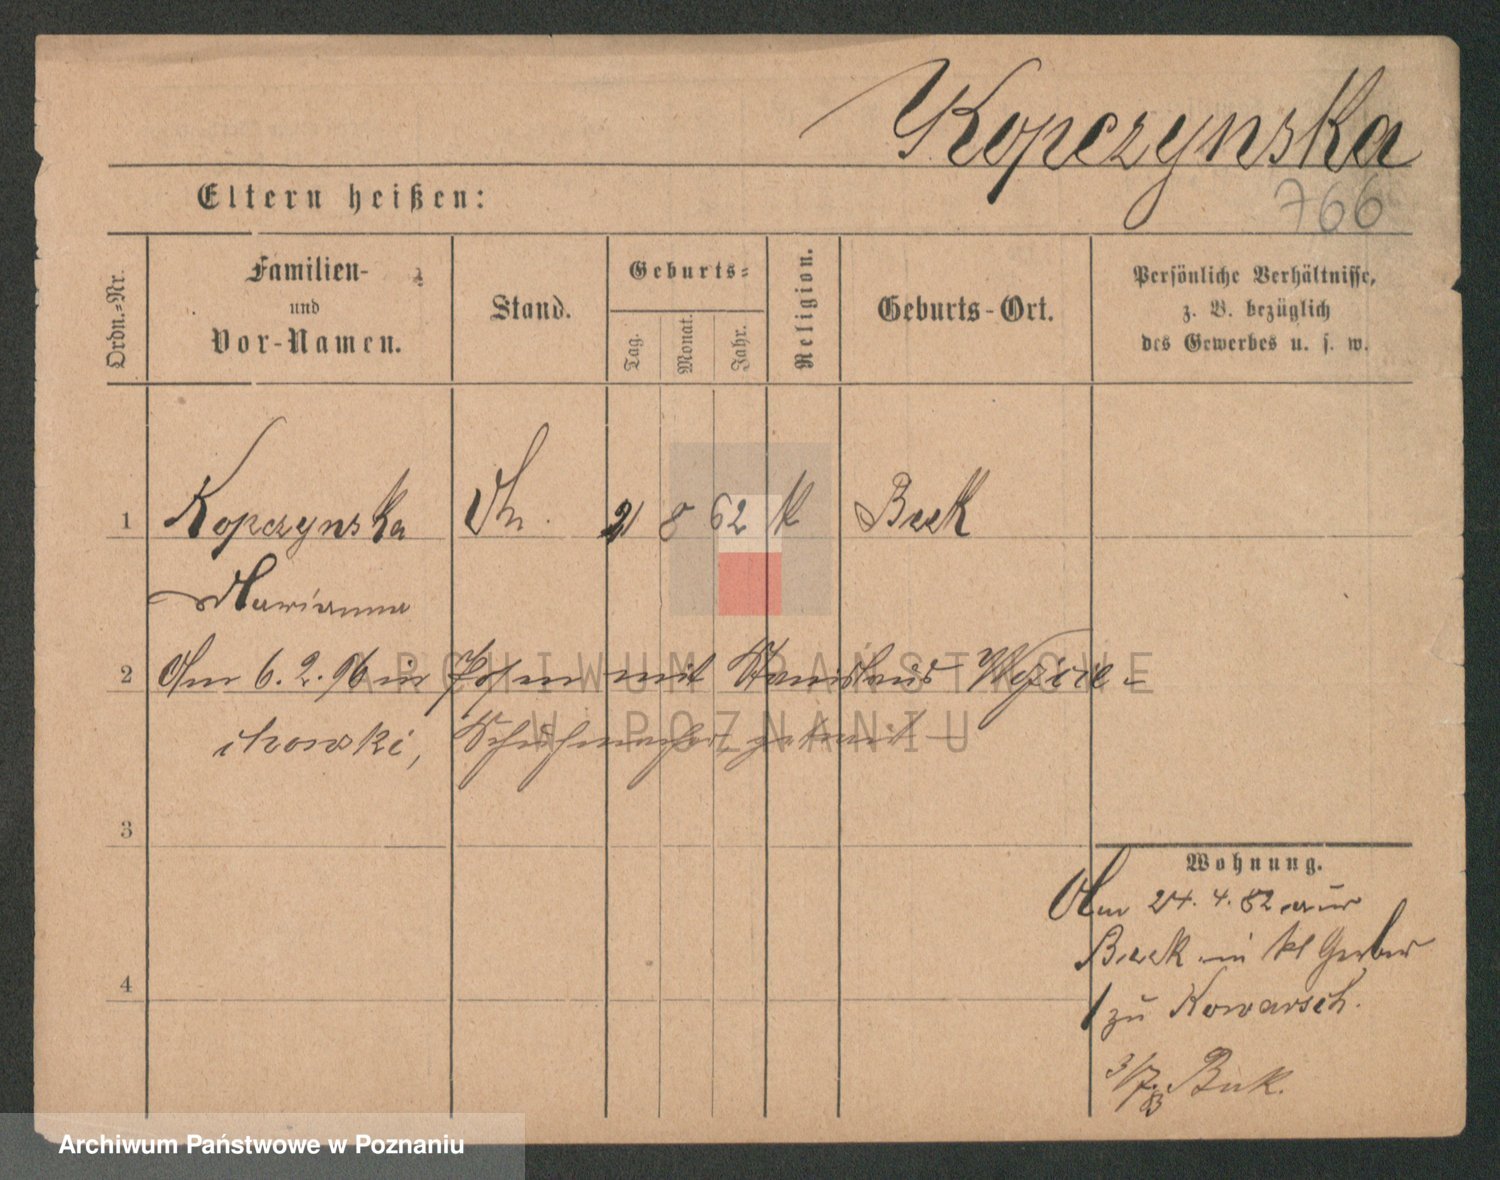 Kopczynska
766
Eltern heißen:
Ordn.-Nr.
Familien-
und
Vor-Namen.
Stand.
Geburts-
Tag.
Monat.
Jahr.
Religion.
Geburts-Ort.
Persönliche Verhältnisse,
z. B. bezüglich
des Gewerbes u. s. w.
1 Kopczynska 21 8 62 k Buk
Marianna
2 Am 6.2.96 in Posen mit Stanislaus
Schuhmacher, getraut
3
Wohnung.
Am 24.4.82 aus
Buk in kl Gerber
4
1 zu Kowarsch.
3/7. 83 Buk.
ARCHIWUM PAŃSTWOWE
W POZNANIU
Archiwum Państwowe w Poznaniu